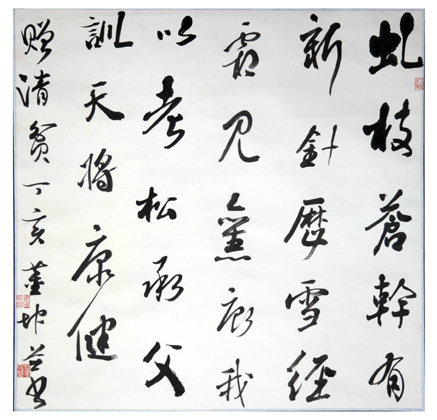 虬枝蒼幹有
新針歷雪經
霜見黛顏我
以老松承父
訓天將康健
贈清貧丁亥董並書